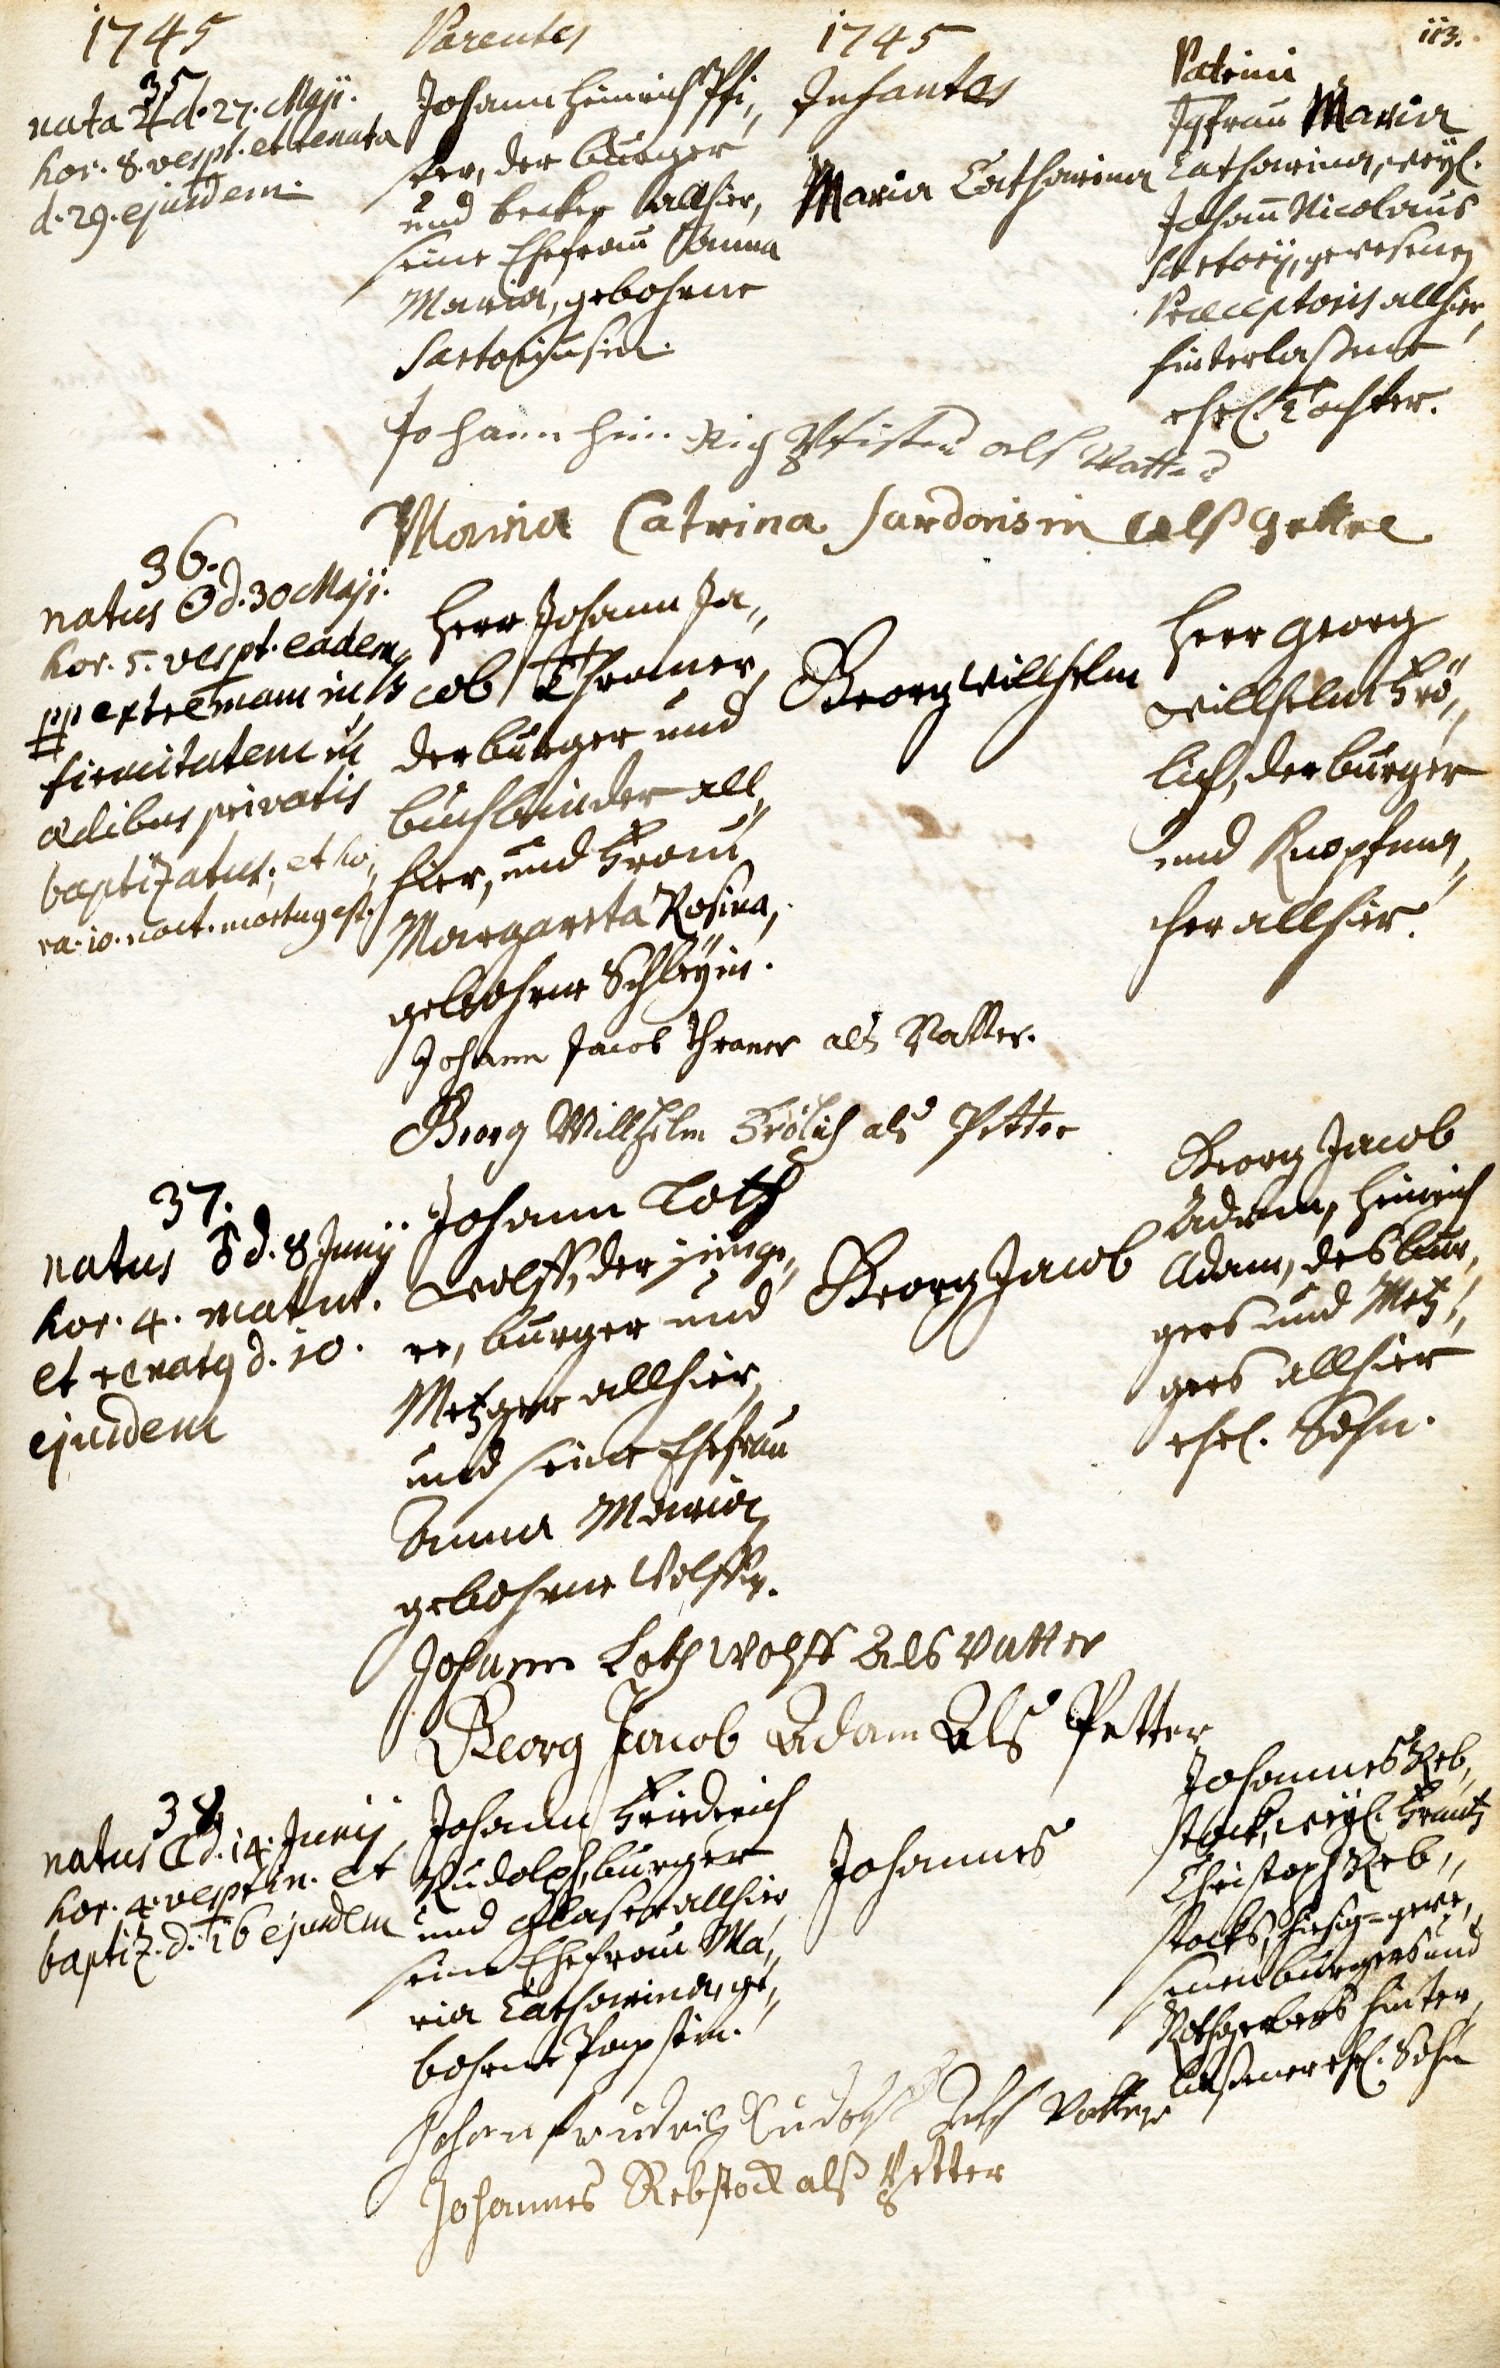 113.
1745
Parentes
1745
Infantes
Patrini
35
nata ♃ d. 27. Maji.
hor. 8. vespt. et renata
d. 29. ejusdem.
Johann Heinrich Pfi„
ster, der burger
und becker allhier,
seine Ehefrau Anna
Maria, gebohrne
Sartoriusin.
Maria Catharina
Jgfrau Maria
Catharina, weyl.
Johan̄ Nicolaus
Sartorij, gewesenen
Praeceptoris allhier,
hinterlaßene
ehel. Tochter.
Johann Hein Rich Pfister als Vatter
Maria Catrina Sardorisin alß gettel
36.
natus ☉ d. 30 Maji.
hor. 5. vespt. eadem,
pp extremam in„
firmitatem in
aedibus privatis
baptizatus, et ho„
ra. 10. noct. mortuus est.
Herr Johann Ja„
cob Thraner,
der burger und
buchbinder all„
hier, und Frau
Margareta Rosina,
gebohrne Schleÿin.
Georg Willhelm
Herr Georg
Willhelm Frö„
lich, der burger
und Knopfma„
cher allhier.
Johann Jacob Thraner als Vatter.
Georg Willhelm Frölich als Petter
37.
natus ♂ d. 8 Junij
hor. 4. matut.
et renatus d. 10.
ejusdem
Johann Loth
Wolff, der jünge„
re, burger und
Metzger allhier,
und seine Ehefrau
Anna Maria,
gebohrne Wolffin.
Georg Jacob
Georg Jacob
Adam, Heinrich
Adam, des bur„
gers und Metz„
gers allhier
ehel. Sohn.
Johann Loth Wolff Als Vatter
Georg Jacob Adam Als Petter
38
natus ☾ d. 14. Junij
hor. 4. vesptin. et
baptiz. d. 16 ejusdem
Johann Friederich
Rudolph, burger
und Glaser allhier,
seine Ehefrau Ma„
ria Catharina, ge„
bohrne Papstin.
Johannes
Johannes Reb„
stock, weyl. Frantz
Christoph Reb„
stocks, hiesig-gewe„
senen burgers und
Rothgerbers hinter„
laßener ehel. Sohn
Johan fridrich Rudolph Als Vatter
Johannes Rebstock alß Petter